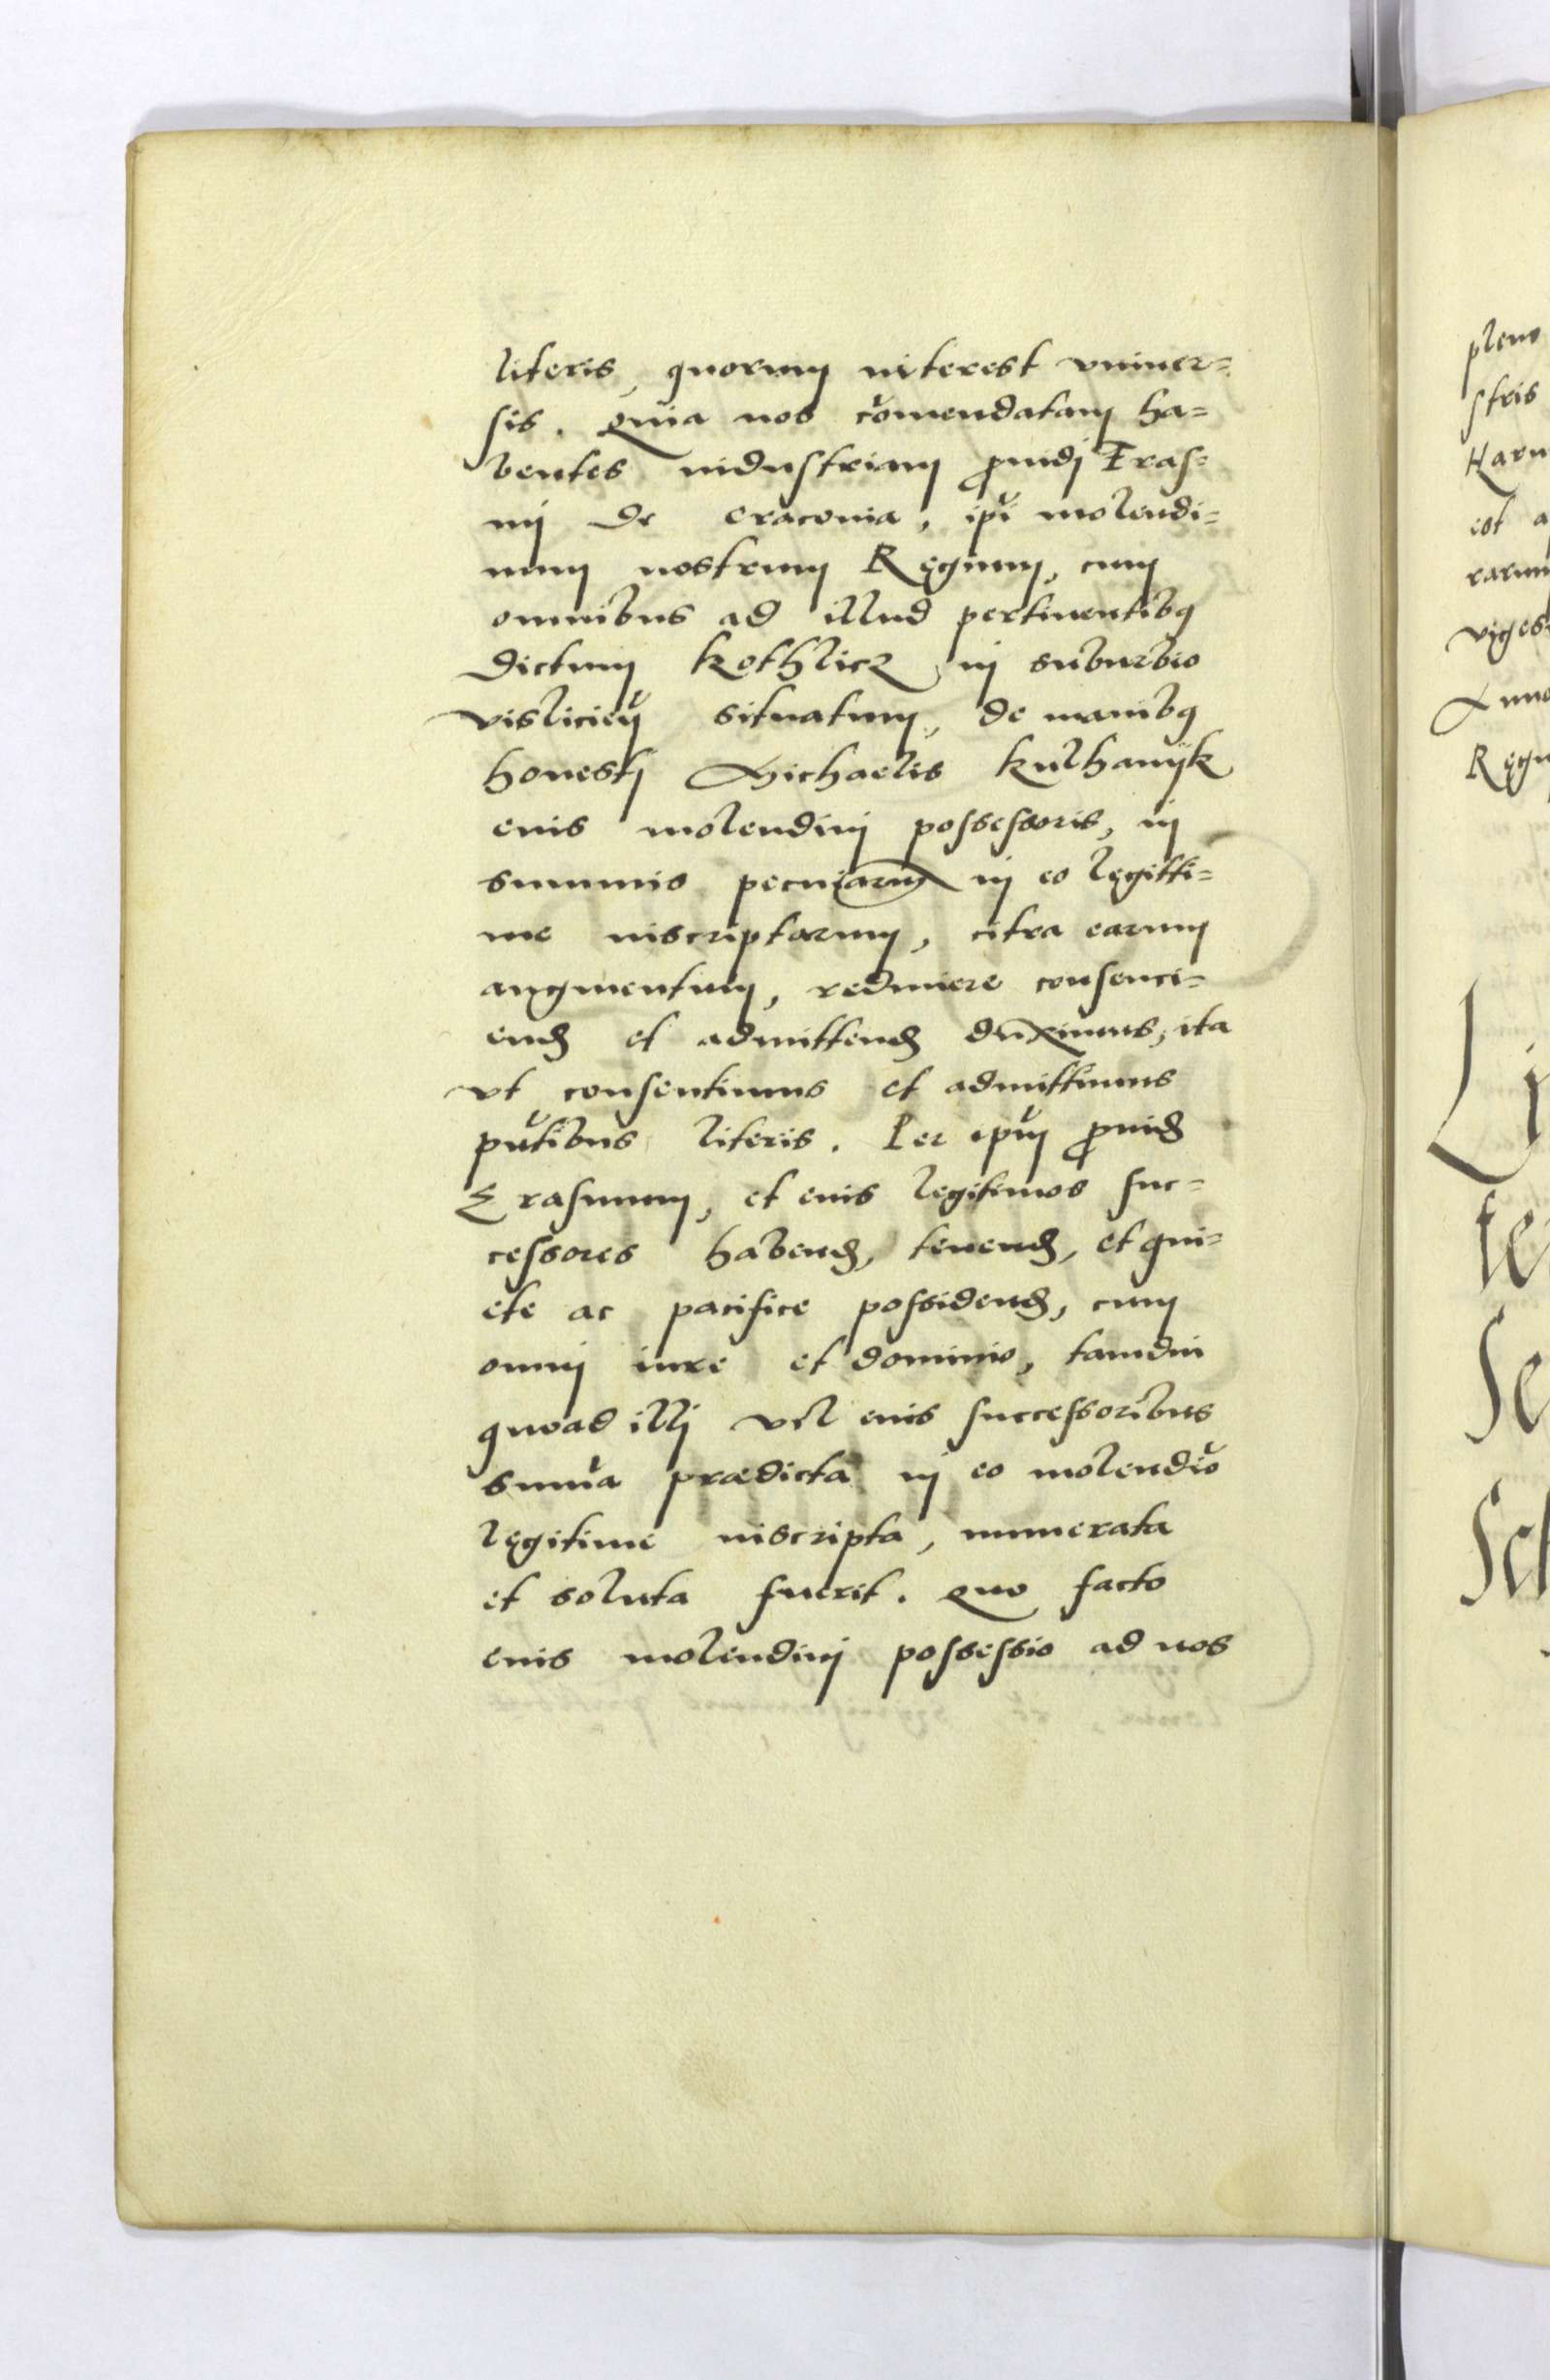 literis, quorum interest vniuer=
sis. Quia nos comendatam ha=
bentes industriam ꝓuidj Eras=
mj de Cracouia, ipi molendi=
num nostrum Regium, cum
omnibus ad illud pertinentibꝗ
dictum Kothlicz in suburbio
vislicieñ situatum, de manibꝗ
honestj Michaelis Kulhanÿk
euis molendinj possessoris, in
summis pecuniarum in eo legitti=
me inscriptarum, citra earum
augmentum, redimere consenci=
end et admittend duximus, ita
vt consentimus et admittimus
pñtibus literis. Per ipm ꝓuid
Erasmum, et eius legitimos suc=
cessores habend, tenend, et qui=
ete ac pacifice possidend, cum
omnj iure et dominio, tamdiu
quoad illj vel eius successoribus
suma prædicta in eo molendio
legitime inscripta, numerata
et soluta fuerit. Quo facto
eius molendinj possessio ad nos
pleno
stris
Karn
est a
rarum
viges
Anno
Regn
Li
te
Se
Sc